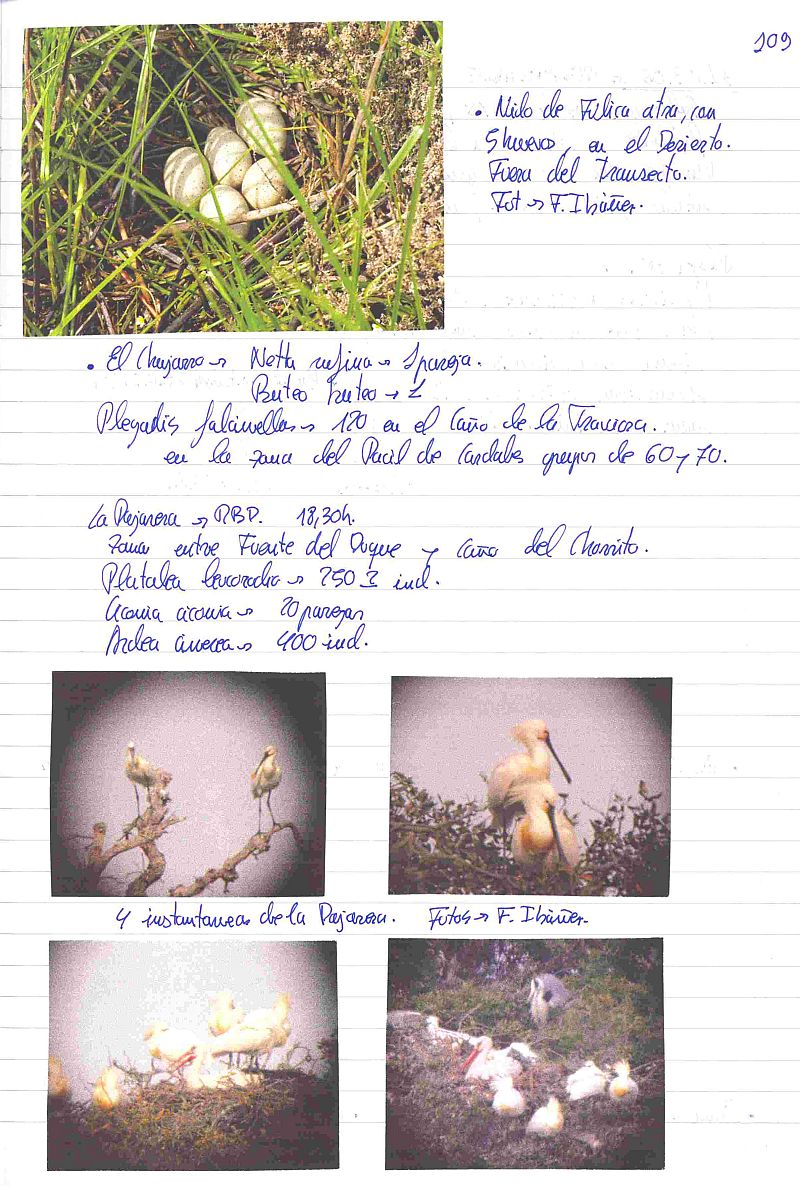 109
• Nido de Fulica atra, con
5 huevos, en el Desierto.
Fuera del Transecto.
Fot → F. Ibáñez.
• El → Netta rufina → 1 pareja.
Buteo buteo → 1
Plegadis falcinellus → 120 en el Caño de la Travesía.
en la zona del Pacil de Candabés grupos de 60 y 70.
La Pajarera → RBD. 18,30h.
Zona entre Fuente del Duque y Caño del Chorrito.
Platalea leucorodia → 250 I ind.
Ciconia ciconia → 20 parejas
Ardea cinerea → 400 ind.
4 instantaneas de la Pajarera. Fotos → F. Ibáñez.